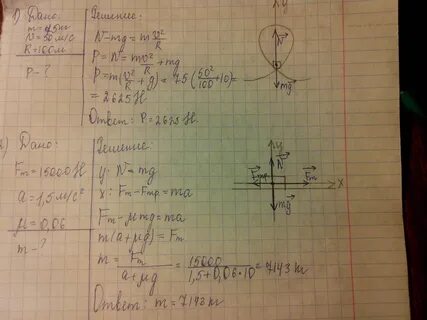 1) Дано:
m = 75 кг
V = 50 м/с
R = 100 м
P - ?
Решение:
N - mg = m V²/R
P = N = m V²/R + mg
P = m(V²/R + g) = 75(50²/100 + 10) =
= 2625 Н
Ответ: P = 2625 Н.
y
N
mg
2) Дано:
Fт = 15000 Н
a = 1,5 м/с²
μ = 0,06
m - ?
Решение:
y: N = mg
x: Fт - Fтр = ma
Fт - μmg = ma
m(a + μg) = Fт
m = Fт/(a + μg) = 15000/(1,5 + 0,06 · 10) = 7143 кг
Ответ: m = 7143 кг
y
N
Fтр
Fт
x
mg